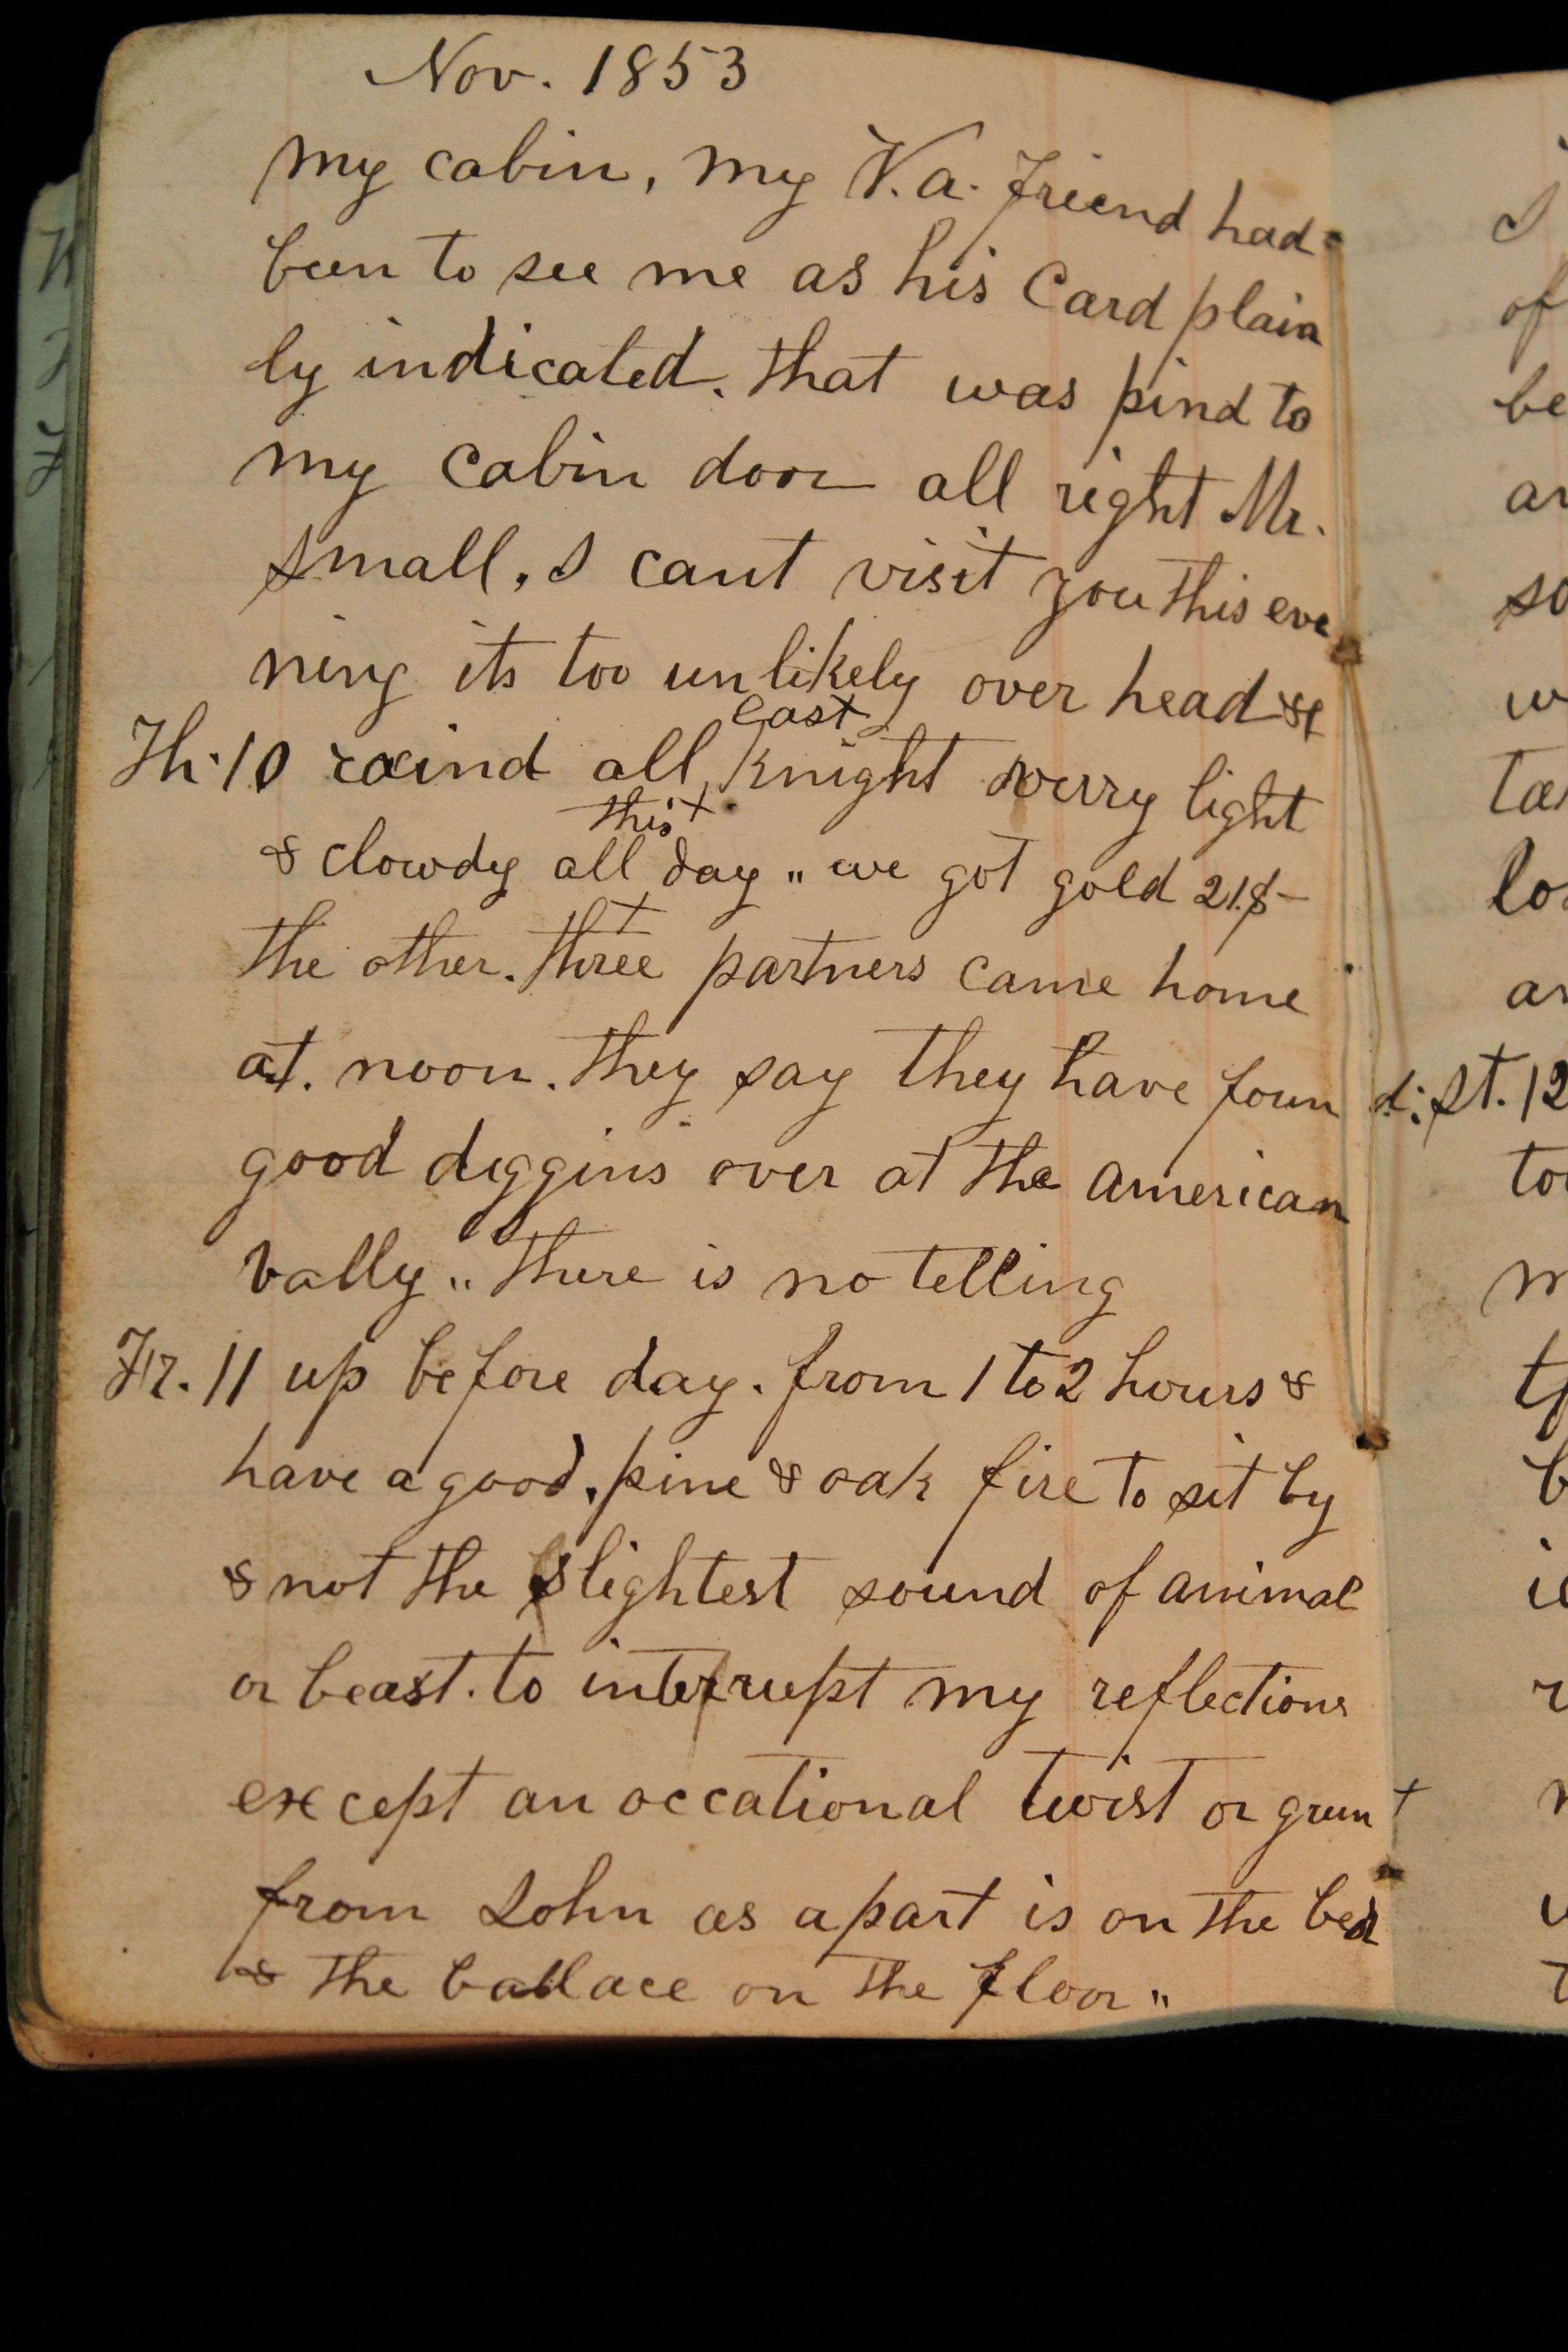 Nov. 1853
my cabin, my V.a. friend had
been to see me as his Card plain
ly indicated. that was pind to
my cabin door all right Mr.
small, I cant visit you this eve
ning its too unlikely over head &
last
Th. 10 raind all knight verry light
this
& clowdy all day " we got gold 21.$-
the other. three partners came home
at. noon. they say they have found:
good diggins over at the american
vally " there is no telling
Fr. 11 up before day. from 1 to 2 hours &
have a good. pine & oak fire to sit by
& not the slightest sound of animal
or beast. to interrupt my reflections
except an occational twist or grunt
from John as a part is on the bed
& the ballace on the floor "
I
of
be
so
st. 12